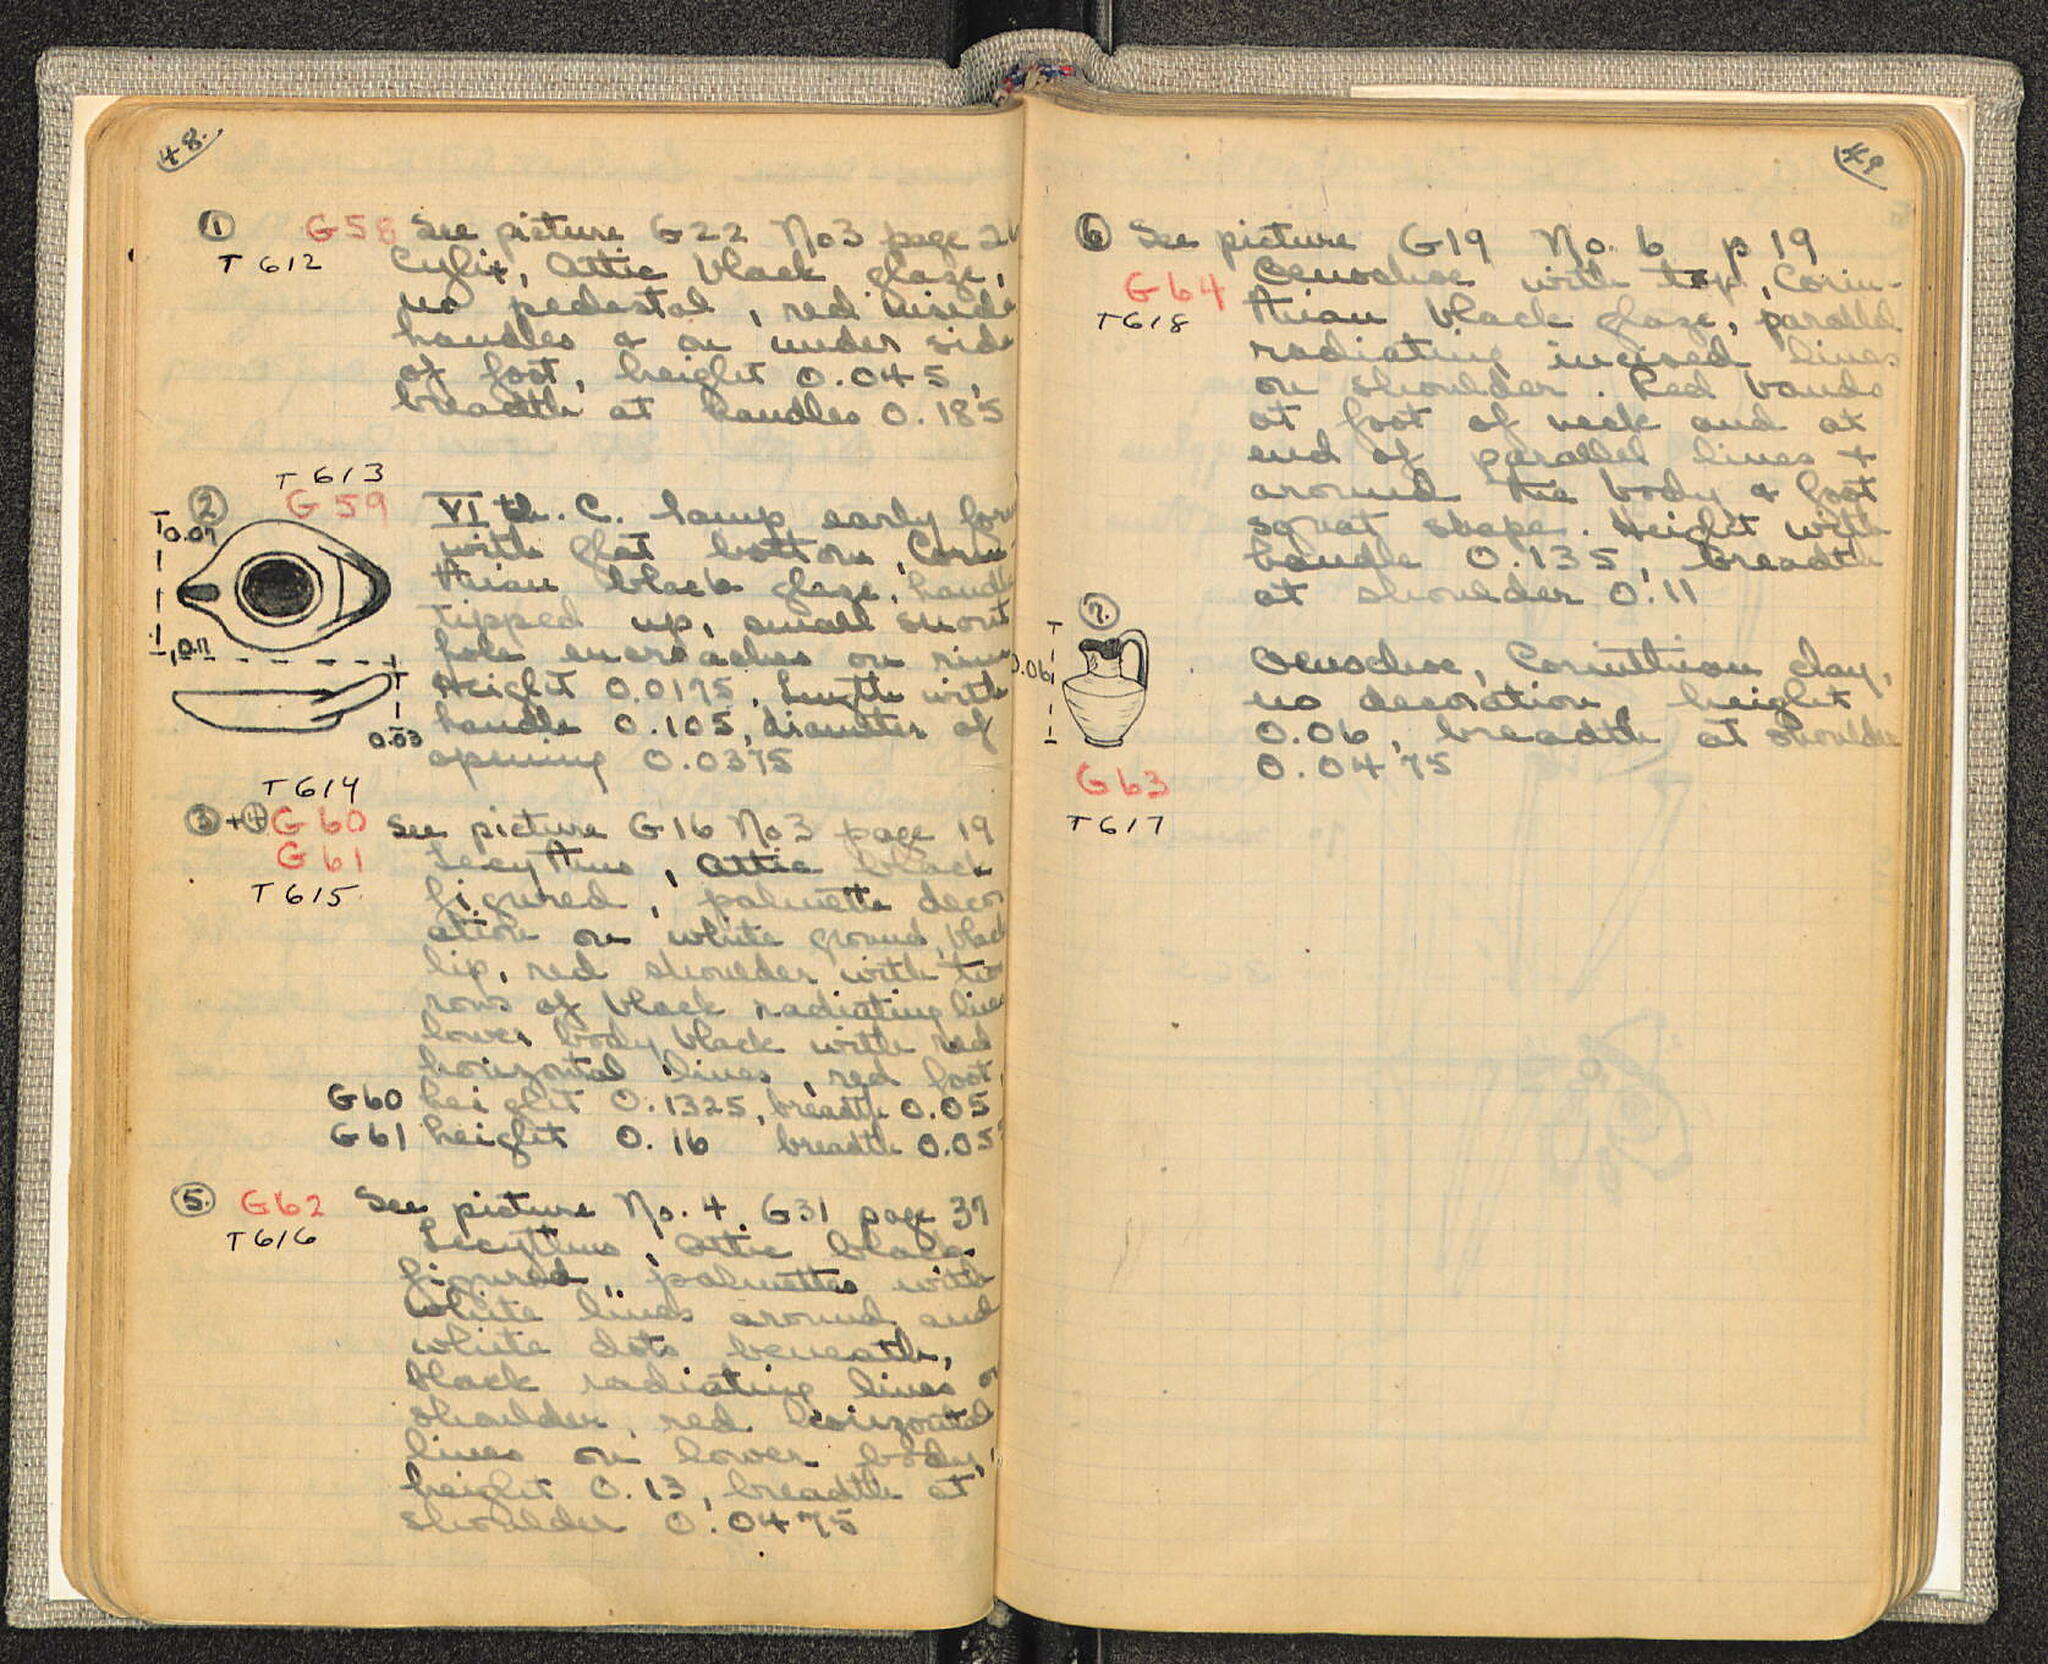 48.
① G58 See picture G22 No3 page 2
T 612 Cylix, Attic black glaze,
no pedestal, red inside
handles & on under side
of foot, height 0.045,
breadth at handles 0.185
T 613
② G59 VIth. C. lamp early form
0.07 with flat bottom, Corin-
thian black glaze, handle
tipped up, small snout
0.11 hole encroaches on rim
Height 0.0175, Length with
handle 0.105, diameter of
0.03
opening 0.0375
T 614
③+④ G60 See picture G16 No3 page 19
G61 Lecythus, Attic black
T 615 figured, palmette decor
ation on white ground, black
lip, red shoulder with two
rows of black radiating lines
lower body black with red
horizontal lines, red foot,
G60 height 0.1325, breadth 0.05
G61 height 0.16 breadth 0.05
⑤ G62 See picture No. 4. G31 page 37
T616 Lecythus, Attic black
figured, palmettes with
white lines around and
white dots beneath,
black radiating lines on
shoulder, red horizontal
lines on lower body,
height 0.13, breadth at
shoulder 0.0475
49
⑥ See picture G19 No. 6 p 19
G64 Oenochoe with top, Corin-
T618 thian black glaze, parallel
radiating incised lines
on shoulder. Red bands
at foot of neck and at
end of parallel lines +
around the body & foot
squat shape. Height with
handle 0.135, breadth
at shoulder 0.11
⑦
0.06 Oenochoe, Corinthian clay,
no decoration, height
0.06, breadth at shoulder
G63 0.0475
T617